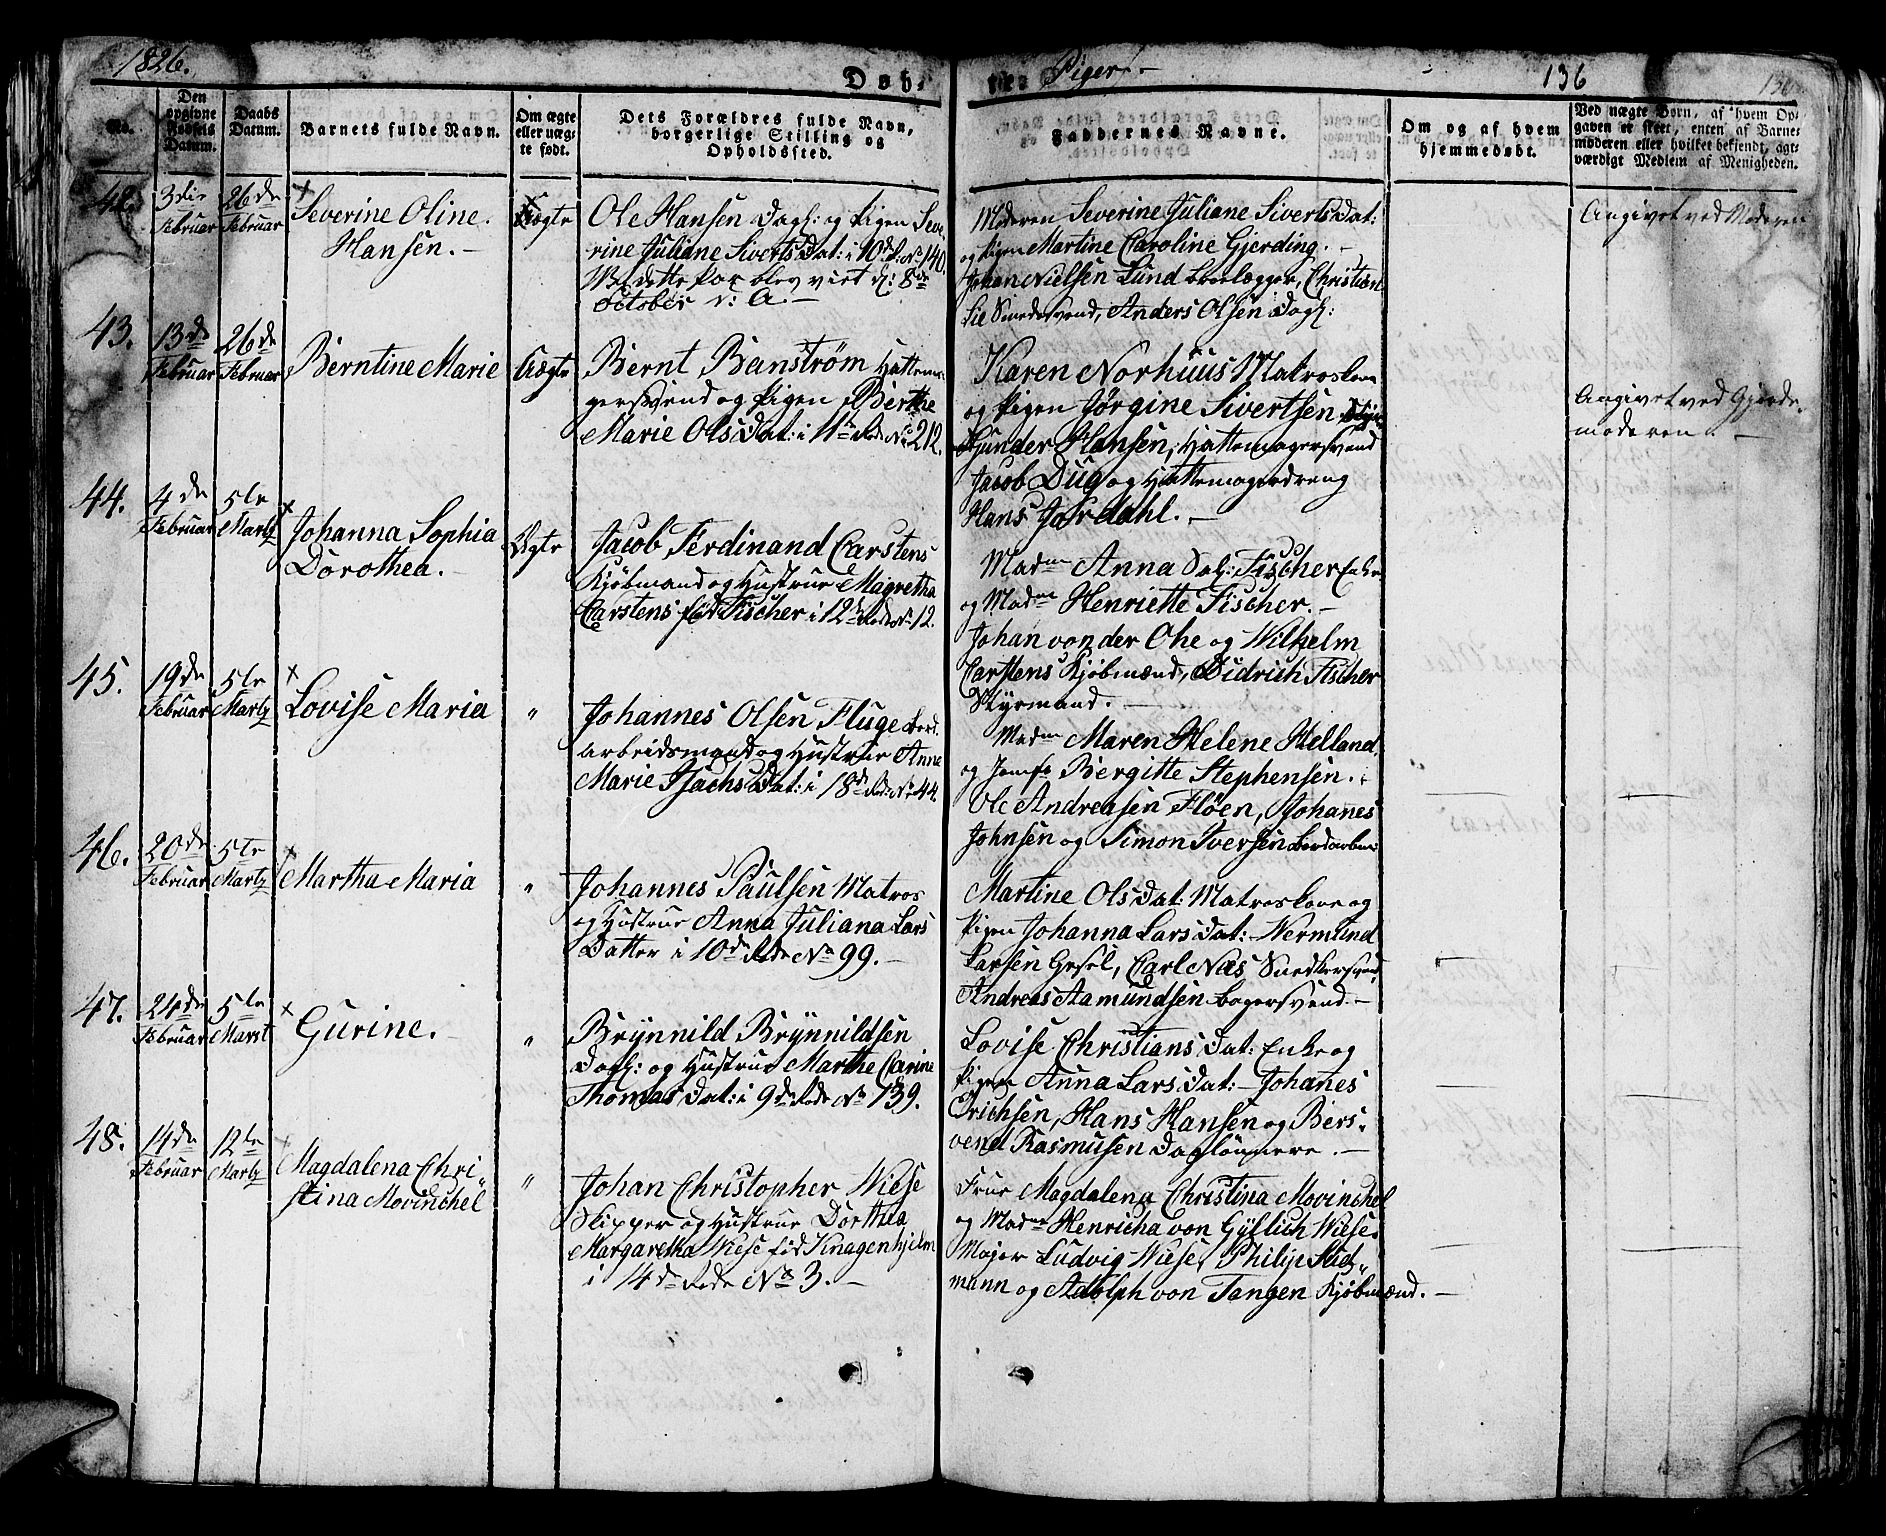 1826.
Døb-
te
Piger.-
136
No.
Den
opgivne
Fødsels
Datum.
Daabs
Datum.
Barnets fulde Navn.
Om ægte
eller uæg-
te født.
Dets Forældres fulde Navn,
borgerlige Stilling og
Opholdssted.
Faddernes Navne.
Om og af hvem
hjemmedøbt.
Ved uægte Børn, af hvem Op-
gaven er skeet, enten af Barne-
moderen eller hvilket bekjendt, agt-
værdigt Medlem af Menigheden.
42.
3die
Februar
26de
Februar
Severine Oline
Hansen.-
Uægte
Ole Hansen Dagl: og Pigen Seve
rine Juliane Siverts Dat: i 10de R: No 140.
dette Par blev viet d: 8de
October d: A.-
Moderen Severine Juliane Siverts Dat:
og Pigen Martine Caroline Gjerding.-
Johan Nielsen Lund Brolægger, Christian
Lie Smedesvend, Anders Olsen Dagl:
Angivet ved Moderen
43.
13de
Februar
26de
Februar
Berntine Marie
Uægte
Bernt Banström Hattema-
gersvend og Pigen Berthe
Marie Ols Dat: i 11te Rode No 212.
Karen Norhuus Matroskone
og Pigen Jørgine Sivertsen
Gunder Hansen, Hattemagersvend
Jacob Dug og Hattemagerdreng
Hans Jordahl.-
Angivet ved Gjorde-
moderen.-
44.
4de
Februar
5te
Martz
Johanna Sophia
Dorothea.-
Ægte
Jacob Ferdinand Carstens
Kjøbmand og Hustrue Magretha
Carstens fød Fischer i 12te Rode No 12.
Madme Anna Fischer Enke
og Madme Henriette Fischer.-
Johan von der Ohe og Wilhelm
Carstens Kjøbmænd, Didrich Fischer
Styrmand.-
45.
19de
Februar
5te
Martz
Lovise Maria
"
Johannes Olsen Fluge Bord-
arbeidsmand og Hustrue Anne
Marie Isachs Dat: i 18de Rode No 44.
Madme Maren Helene Helland
og Jomfr Bergitte Stephensen.
Ole Andreasen Fløen, Johanes
Johnsen og Simon Iversen Bordarbm:
46.
20de
Februar
5te
Martz
Martha Maria
"
Johannes Paulsen Matros
og Hustrue Anna Juliana Lars
Datter i 10de Rode No 99.-
Martine Ols Dat: Matroskone og
Pigen Johanna Lars Dat:- Nermund
Larsen Gesel, Carl Næs Snedkersvend
Andreas Aamundsen Bagersvend.-
47.
24de
Februar
5te
Marst
Gurine.-
"
Brynnild Brynnildsen
Dagl: og Hustrue Marthe Carine
Thomas Dat: i 9de Rode No 139.
Lovise Christians Dat: Enke og
Pigen Anna Lars Dat:- Johanes
Erichsen, Hans Hansen og Bers-
vend Rasmusen Daglønnere.-
48.
14de
Februar
12te
Martz
Magdalena Chri
stina Movinchel
"
Johan Christopher Wiese
Skipper og Hustrue Dorthea
Margaretha Wiese fød Knagenhjelm
i 14de Rode No 3.-
Frue Magdalena Christina Movinchel
og Madme Henricha von Gyllich Wiese.
Major Ludvig Wiese, Philip
mann og Adolph von Tangen Kjøbmænd.-